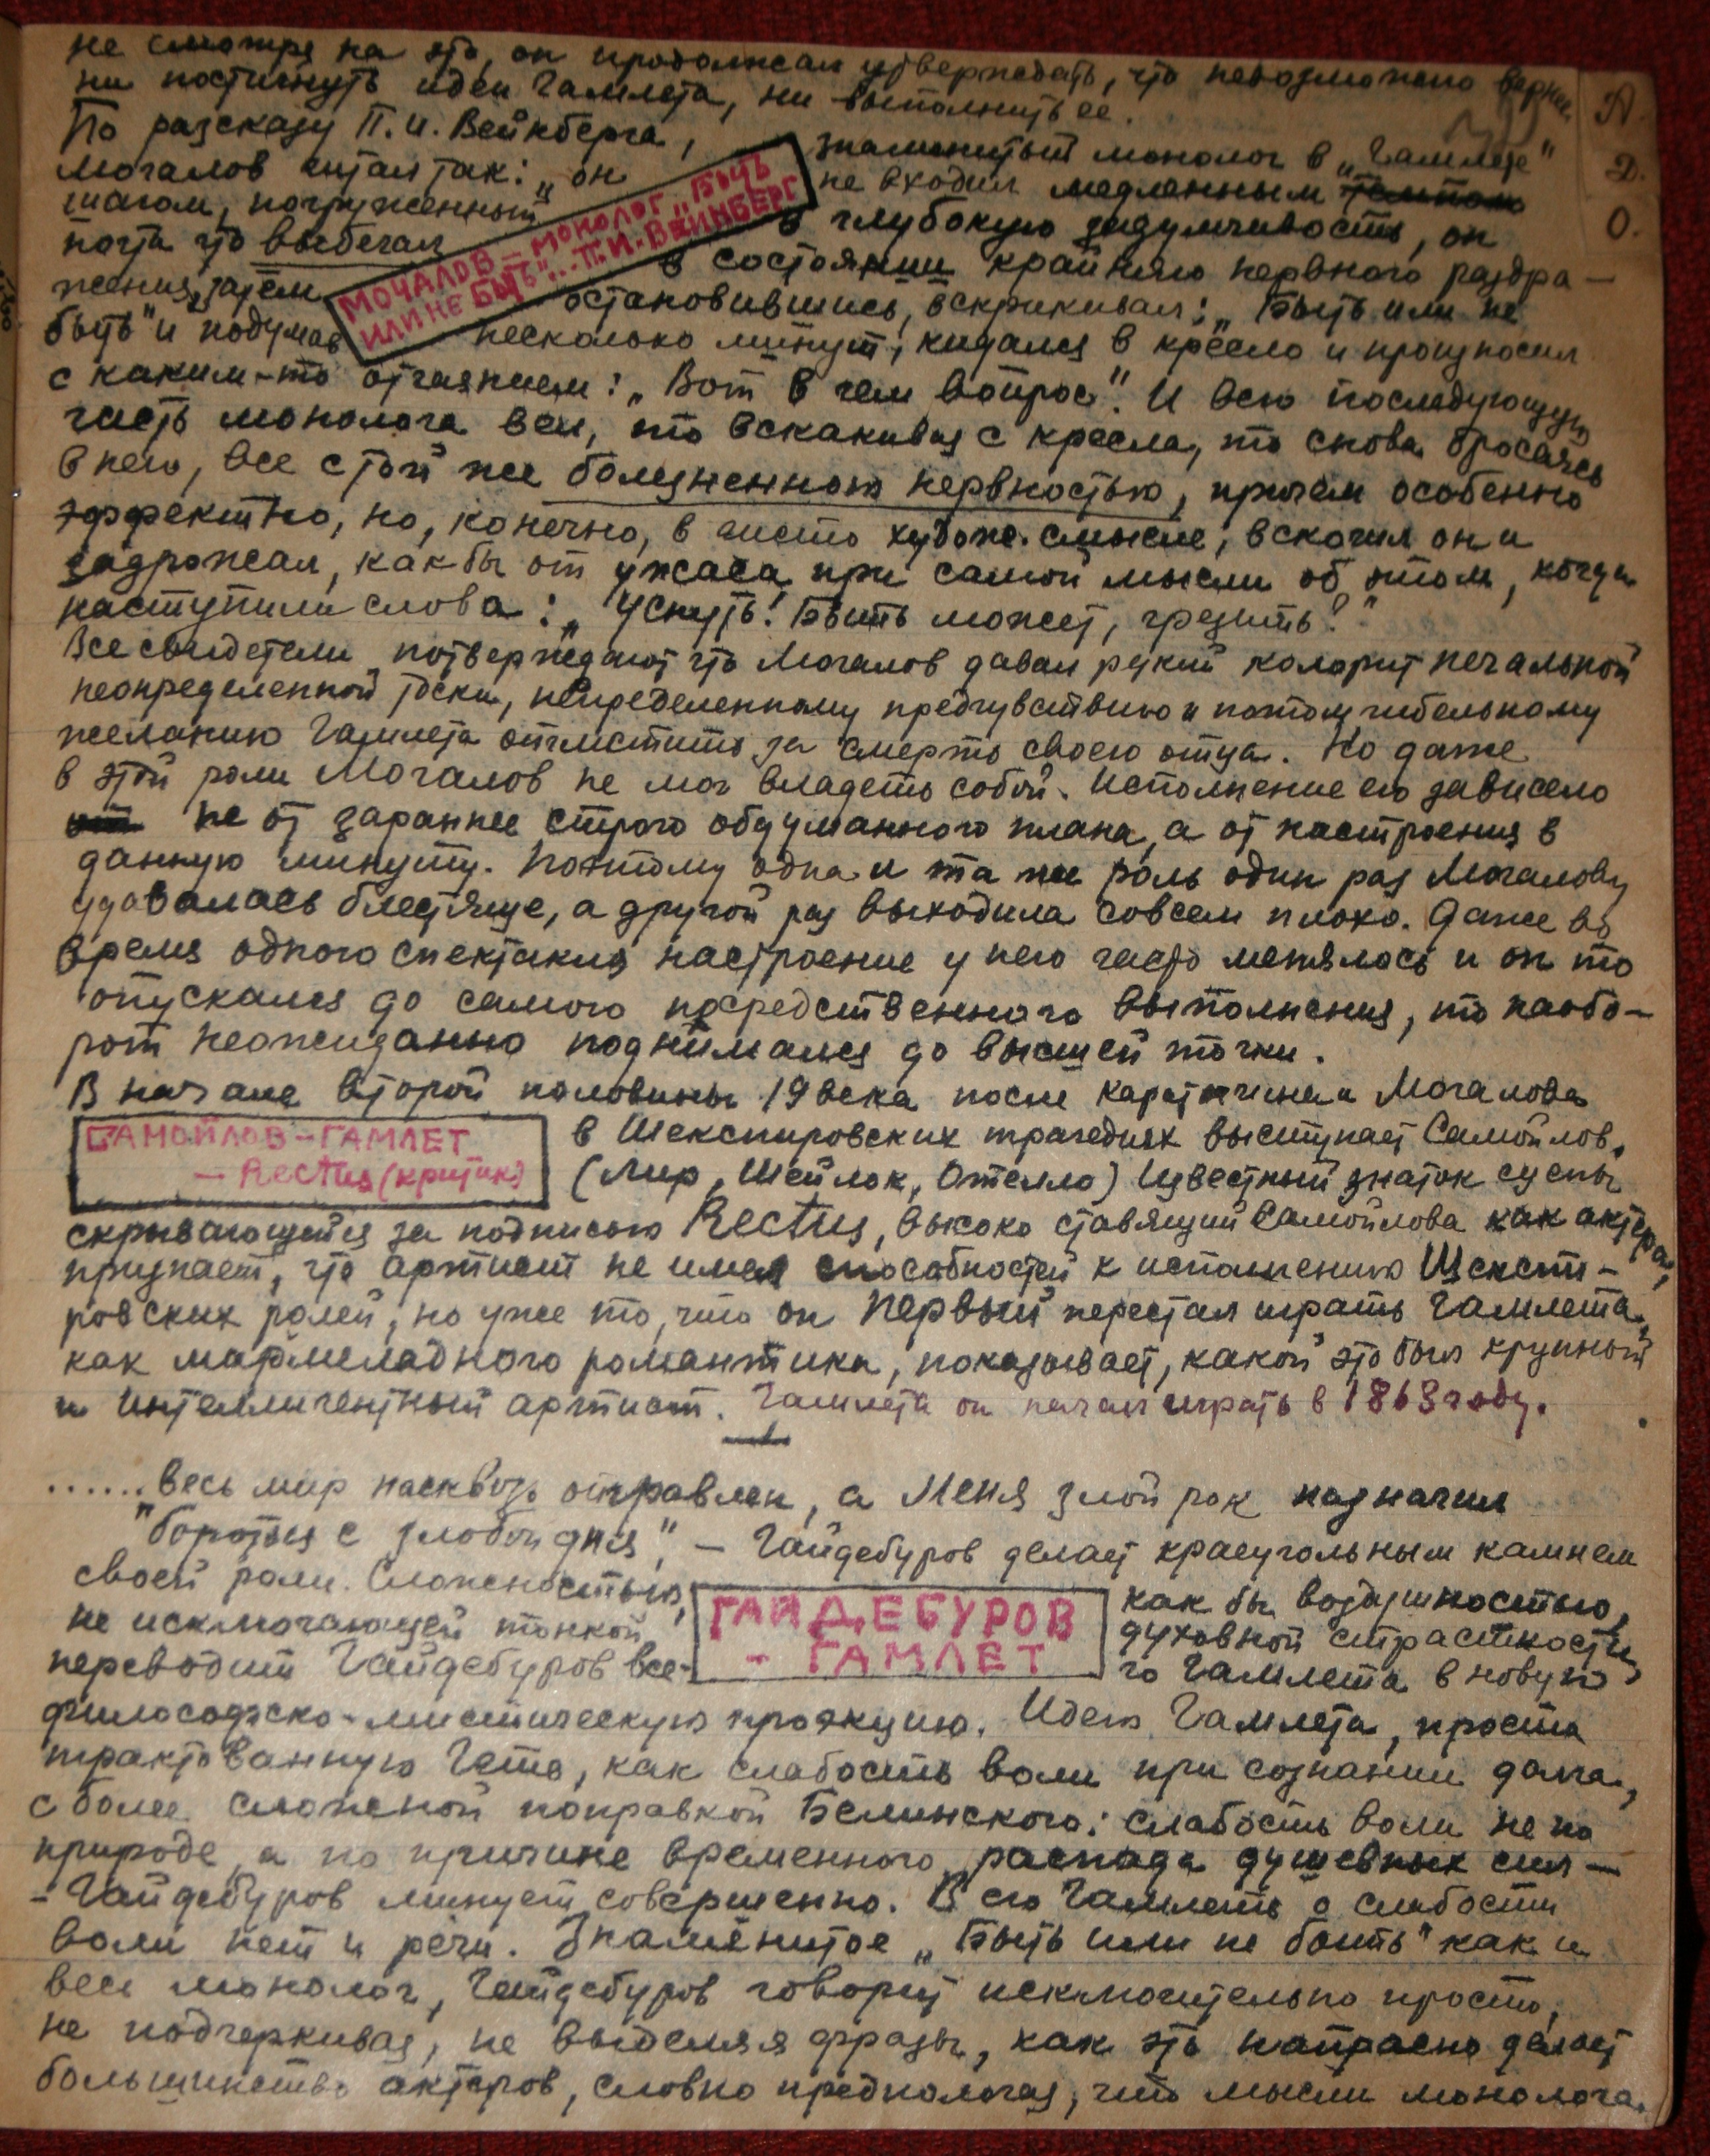 не смотря на это, он продолжал утверждать, что невозможно верно
ни постигнуть идеи Гамлета, ни выполнить ее.
По рассказу П.И. Вейнберга, знаменитый монолог в „Гамлете"
Мочалов читал так: „он не входил медленным темпом
шагом, погруженный в глубокую задумчивость, он
почти что выбегал в состоянии крайняго нервного раздра-
жения, затем остановившись, вскрикивал: „Быть или не
быть" и подумав несколько минут, кидался в кресло и произносил
МОЧАЛОВ – МОНОЛОГ „БЫТЬ
ИЛИ НЕ БЫТЬ"... П.И. ВЕЙНБЕРГ
с каким-то отчаянием: „Вот в чем вопрос". И всю последующую
часть монолога вел, то вскакивая с кресла, то снова бросаясь
в него, все с той же болезненною нервностью, причем особенно
эффектно, но, конечно, в чисто художе. смысле, вскочил он и
задрожал, как бы от ужаса при самой мысли об этом, когда
наступили слова: „Уснуть! Быть может, грезить?"
Все свидетели потверждают что Мочалов давал резкий колорит печальной
неопределенной тоски, неопределенному предчувствию и потом гибельному
желанию Гамлета отмстить за смерть своего отца. Но даже
в этой роли Мочалов не мог владеть собой. Исполнение его зависело
от не от заранее строго обдуманного плана, а от настроения в
данную минуту. Поэтому одна и та же роль один раз Мочалову
удавалась блестяще, а другой раз выходила совсем плохо. Даже во
время одного спектакля настроение у него часто менялось и он то
опускался до самого посредственного выполнения, то наобо-
рот неожиданно поднимался до высшей точки.
В начале второй половины 19 века после Каратыгина и Мочалова
САМОЙЛОВ – ГАМЛЕТ
– Rectus (критик)
в Шекспировских трагедиях выступает Самойлов.
(Лир, Шейлок, Отелло) Известный знаток сцены
скрывающийся за подписью Rectus, высоко ставящий Самойлова как актера,
признает, что артист не имел способностей к исполнению Шекспи-
ровских ролей, но уже то, что он первый перестал играть Гамлета,
как мармеладного романтика, показывает, какой это был крупный
и интеллигентный артист. Гамлета он начал играть в 1863 году.
......весь мир насквозь отравлен, а меня злой рок назначил
"бороться с злобой дня", – Гайдебуров делает краеугольным камнем
своей роли. Сложностью, как бы воздушностью,
не исключающей тонкой духовной страстности,
переводит Гайдебуров все- го Гамлета в новую
ГАЙДЕБУРОВ
– ГАМЛЕТ
философско-мистическую проэкцию. Идею Гамлета, просто
трактованную Гете, как слабость воли при сознании долга,
с более сложной поправкой Белинского: слабость воли не по
природе, а по причине временного распада душевных сил –
– Гайдебуров минует совершенно. В его Гамлеть о слабости
воли нет и речи. Знаменитое „Быть или не быть" как и
весь монолог, Гайдебуров говорит исключительно просто,
не подчеркивая, не выделяя фразы, как это напрасно делает
большинство актеров, словно предполагая, что мысли монолога
А.
Д.
О.